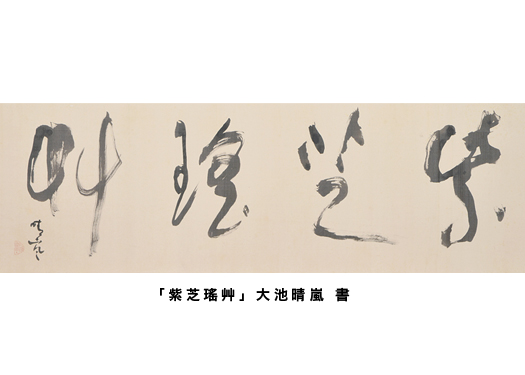 紫芝瑤艸
晴嵐
「紫芝瑤艸」大池晴嵐 書